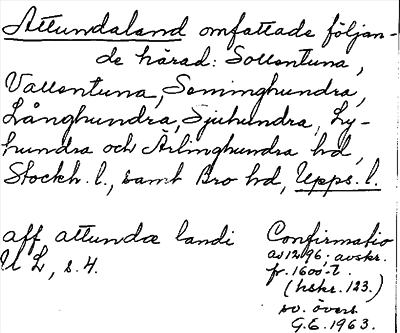 Attundaland omfattade följan-
de härad: Sollentuna,
Vallentuna, Seminghundra,
Långhundra, Sjuhundra, Ly-
hundra och Ärlinghundra hd,
Stockh. l., samt Bro hd, Upps. l.
aff attunda landi
U L, s. 4.
Confirmatio
av 1296; avskr.
fr. 1600-t.
(hskr. 123.)
sv. övers.
G.E. 1963.